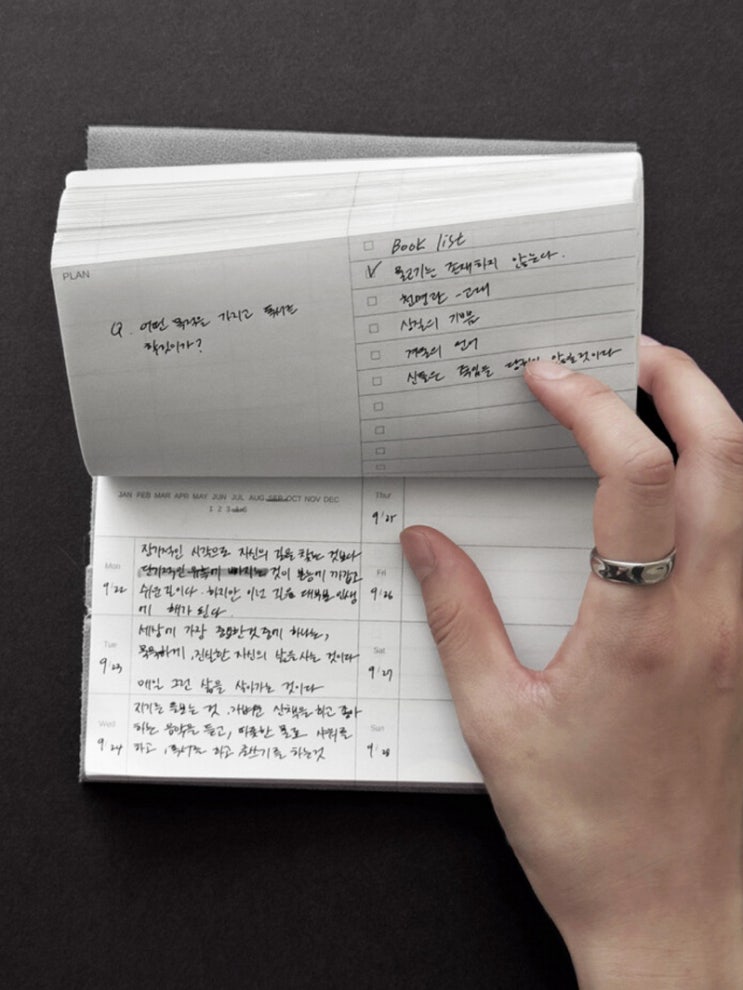 PLAN
Q. 어떤 목적을 가지고 독서를
할것이가?
Book list
물고기는 존재하지 않는다.
천명관 - 고래
상실의 기쁨
겨울의 언어
신들은 죽임을 당하지 않을것이다
JAN FEB MAR APR MAY JUN JUL AUG SEP OCT NOV DEC
1 2 3 4 5 6
Mon
9/22
장기적인 시간으로 자신의 길을 찾는 것보다
단기적인 유혹에 빠지는 것이 본능에 가깝고
쉬운길이다. 하지만 이런 길은 대부분 인생
에 해가 된다.
Tue
9/23
세상에 가장 중요한것중에 하나는,
묵묵하게, 진실한 자신의 삶을 사는 것이다
매일 그런 삶을 살아가는 것이다
Wed
9/24
자기를 돌보는 것. 가벼운 산책을 하고 좋아
하는 음악을 듣고, 따듯한 물로 샤워를
하고, 독서를 하고 글쓰기를 하는것
Thur
9/25
Fri
9/26
Sat
9/27
Sun
9/28